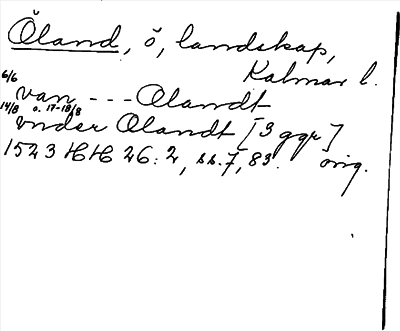 Öland, ö, landskap,
Kalmar l.
6/6
van --- Olandt
14/8 o. 17-18/8
vnder Olandt [3 ggr]
1523 HH 26:2, ss. 7, 83. orig.